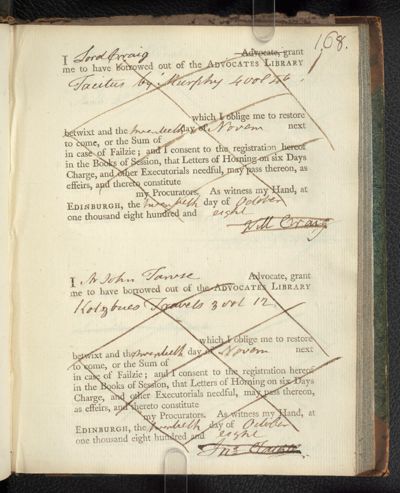 168.
I Lord Craig Advocate, grant
me to have borrowed out of the ADVOCATES LIBRARY
Tacitus by Murphy 4 vol
which I oblige me to restore
betwixt and the twentieth day of Novem next
to come, or the Sum of
in case of Failzie; and I consent to the registration hereof
in the Books of Session, that Letters of Horning on six Days
Charge, and other Executorials needful, may pass thereon, as
effeirs, and thereto constitute
my Procurators. As witness my Hand, at
EDINBURGH, the twentieth day of October
one thousand eight hundred and eight
Will Craig
I Mr John Tawse Advocate, grant
me to have borrowed out of the ADVOCATES LIBRARY
Kotzbues Travels 3 vol 12
which I oblige me to restore
betwixt and the twentieth day of Novem next
to come, or the Sum of
in case of Failzie; and I consent to the registration hereof
in the Books of Session, that Letters of Horning on six Days
Charge, and other Executorials needful, may pass thereon,
as effeirs, and thereto constitute
my Procurators. As witness my Hand, at
EDINBURGH, the twentieth day of October
one thousand eight hundred and eight